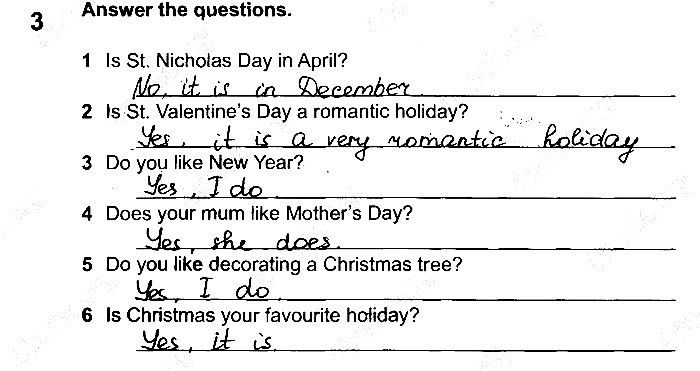 3 Answer the questions.
1 Is St. Nicholas Day in April?
No, it is in December.
2 Is St. Valentine's Day a romantic holiday?
Yes, it is a very romantic holiday
3 Do you like New Year?
Yes, I do
4 Does your mum like Mother's Day?
Yes, she does.
5 Do you like decorating a Christmas tree?
Yes, I do.
6 Is Christmas your favourite holiday?
Yes, it is.